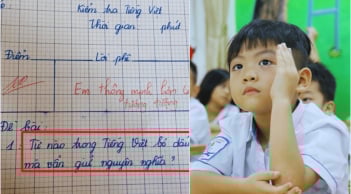 Kiểm tra Tiếng Việt
Thời gian phút
Điểm Lời phê
Em thông minh hiện
tưởng tượng
Đề bài:
1. Từ nào trong Tiếng Việt bỏ dấu
mà vẫn giữ nguyên nghĩa?